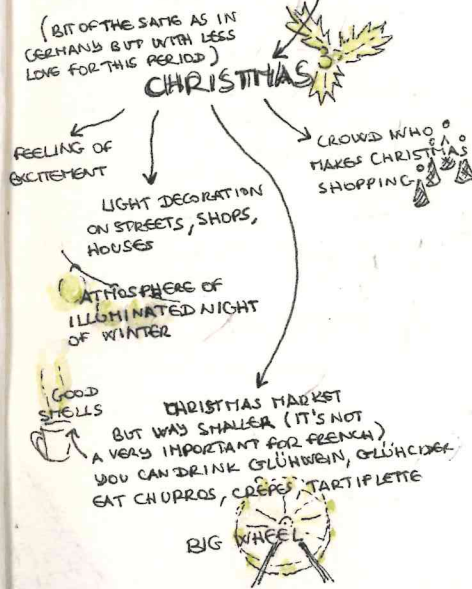 (BIT OF THE SAME AS IN
GERMANY BUT WITH LESS
LOVE FOR THIS PERIOD)
CHRISTMAS
FEELING OF
EXCITEMENT
LIGHT DECORATION
ON STREETS, SHOPS,
HOUSES
CROWD WHO
MAKES CHRISTMAS
SHOPPING
ATMOSPHERE OF
ILLUMINATED NIGHT
OF WINTER
GOOD
SMELLS
CHRISTMAS MARKET
BUT WAY SMALLER (IT'S NOT
A VERY IMPORTANT FOR FRENCH)
YOU CAN DRINK GLÜHWEIN, GLÜHCIDER
EAT CHURROS, CRÊPES, TARTIFLETTE
BIG WHEEL